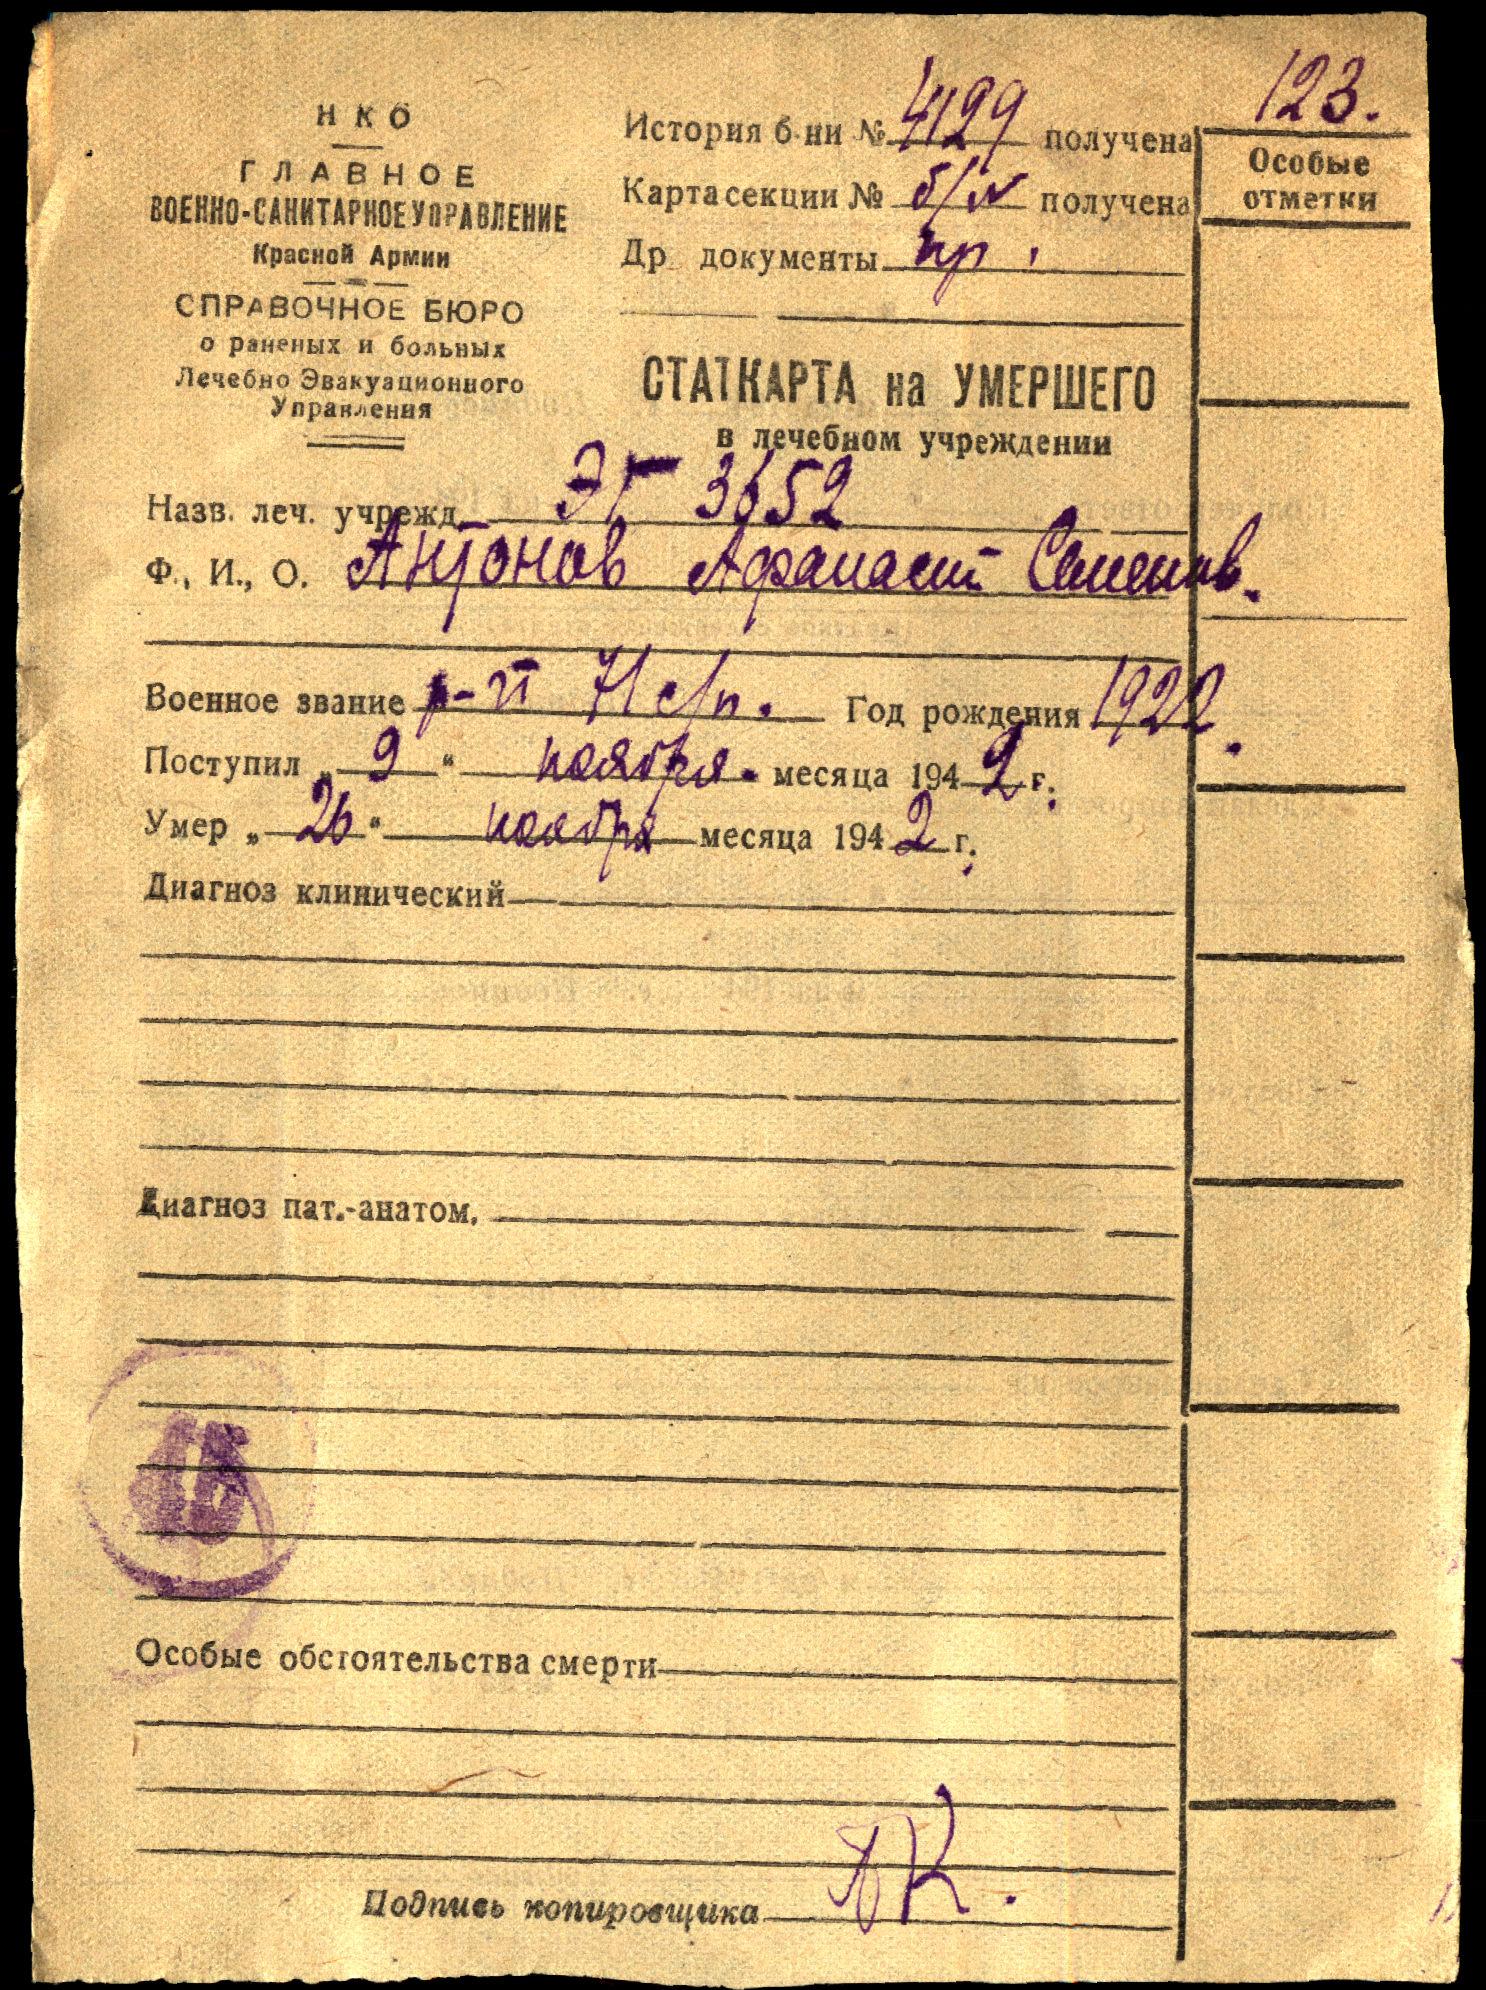 НКО
ГЛАВНОЕ
ВОЕННО-САНИТАРНОЕ УПРАВЛЕНИЕ
Красной Армии
СПРАВОЧНОЕ БЮРО
о раненых и больных
Лечебно Эвакуационного
Управления
История б-ни № 4129 получена
Карта секции № б/N получена
Др документы пр.
123.
Особые
отметки
СТАТКАРТА на УМЕРШЕГО
в лечебном учреждении
Назв. леч. учрежд. ЭГ 3652
Ф., И., О. Антонов Афанасий Семенов.
Военное звание р-й 71 с/п. Год рождения 1922.
Поступил „ 9 “ ноября. месяца 1942 г.
Умер „ 26 “ ноября месяца 1942 г.
Диагноз клинический
Диагноз пат.-анатом.
Особые обстоятельства смерти
Подпись копировщика